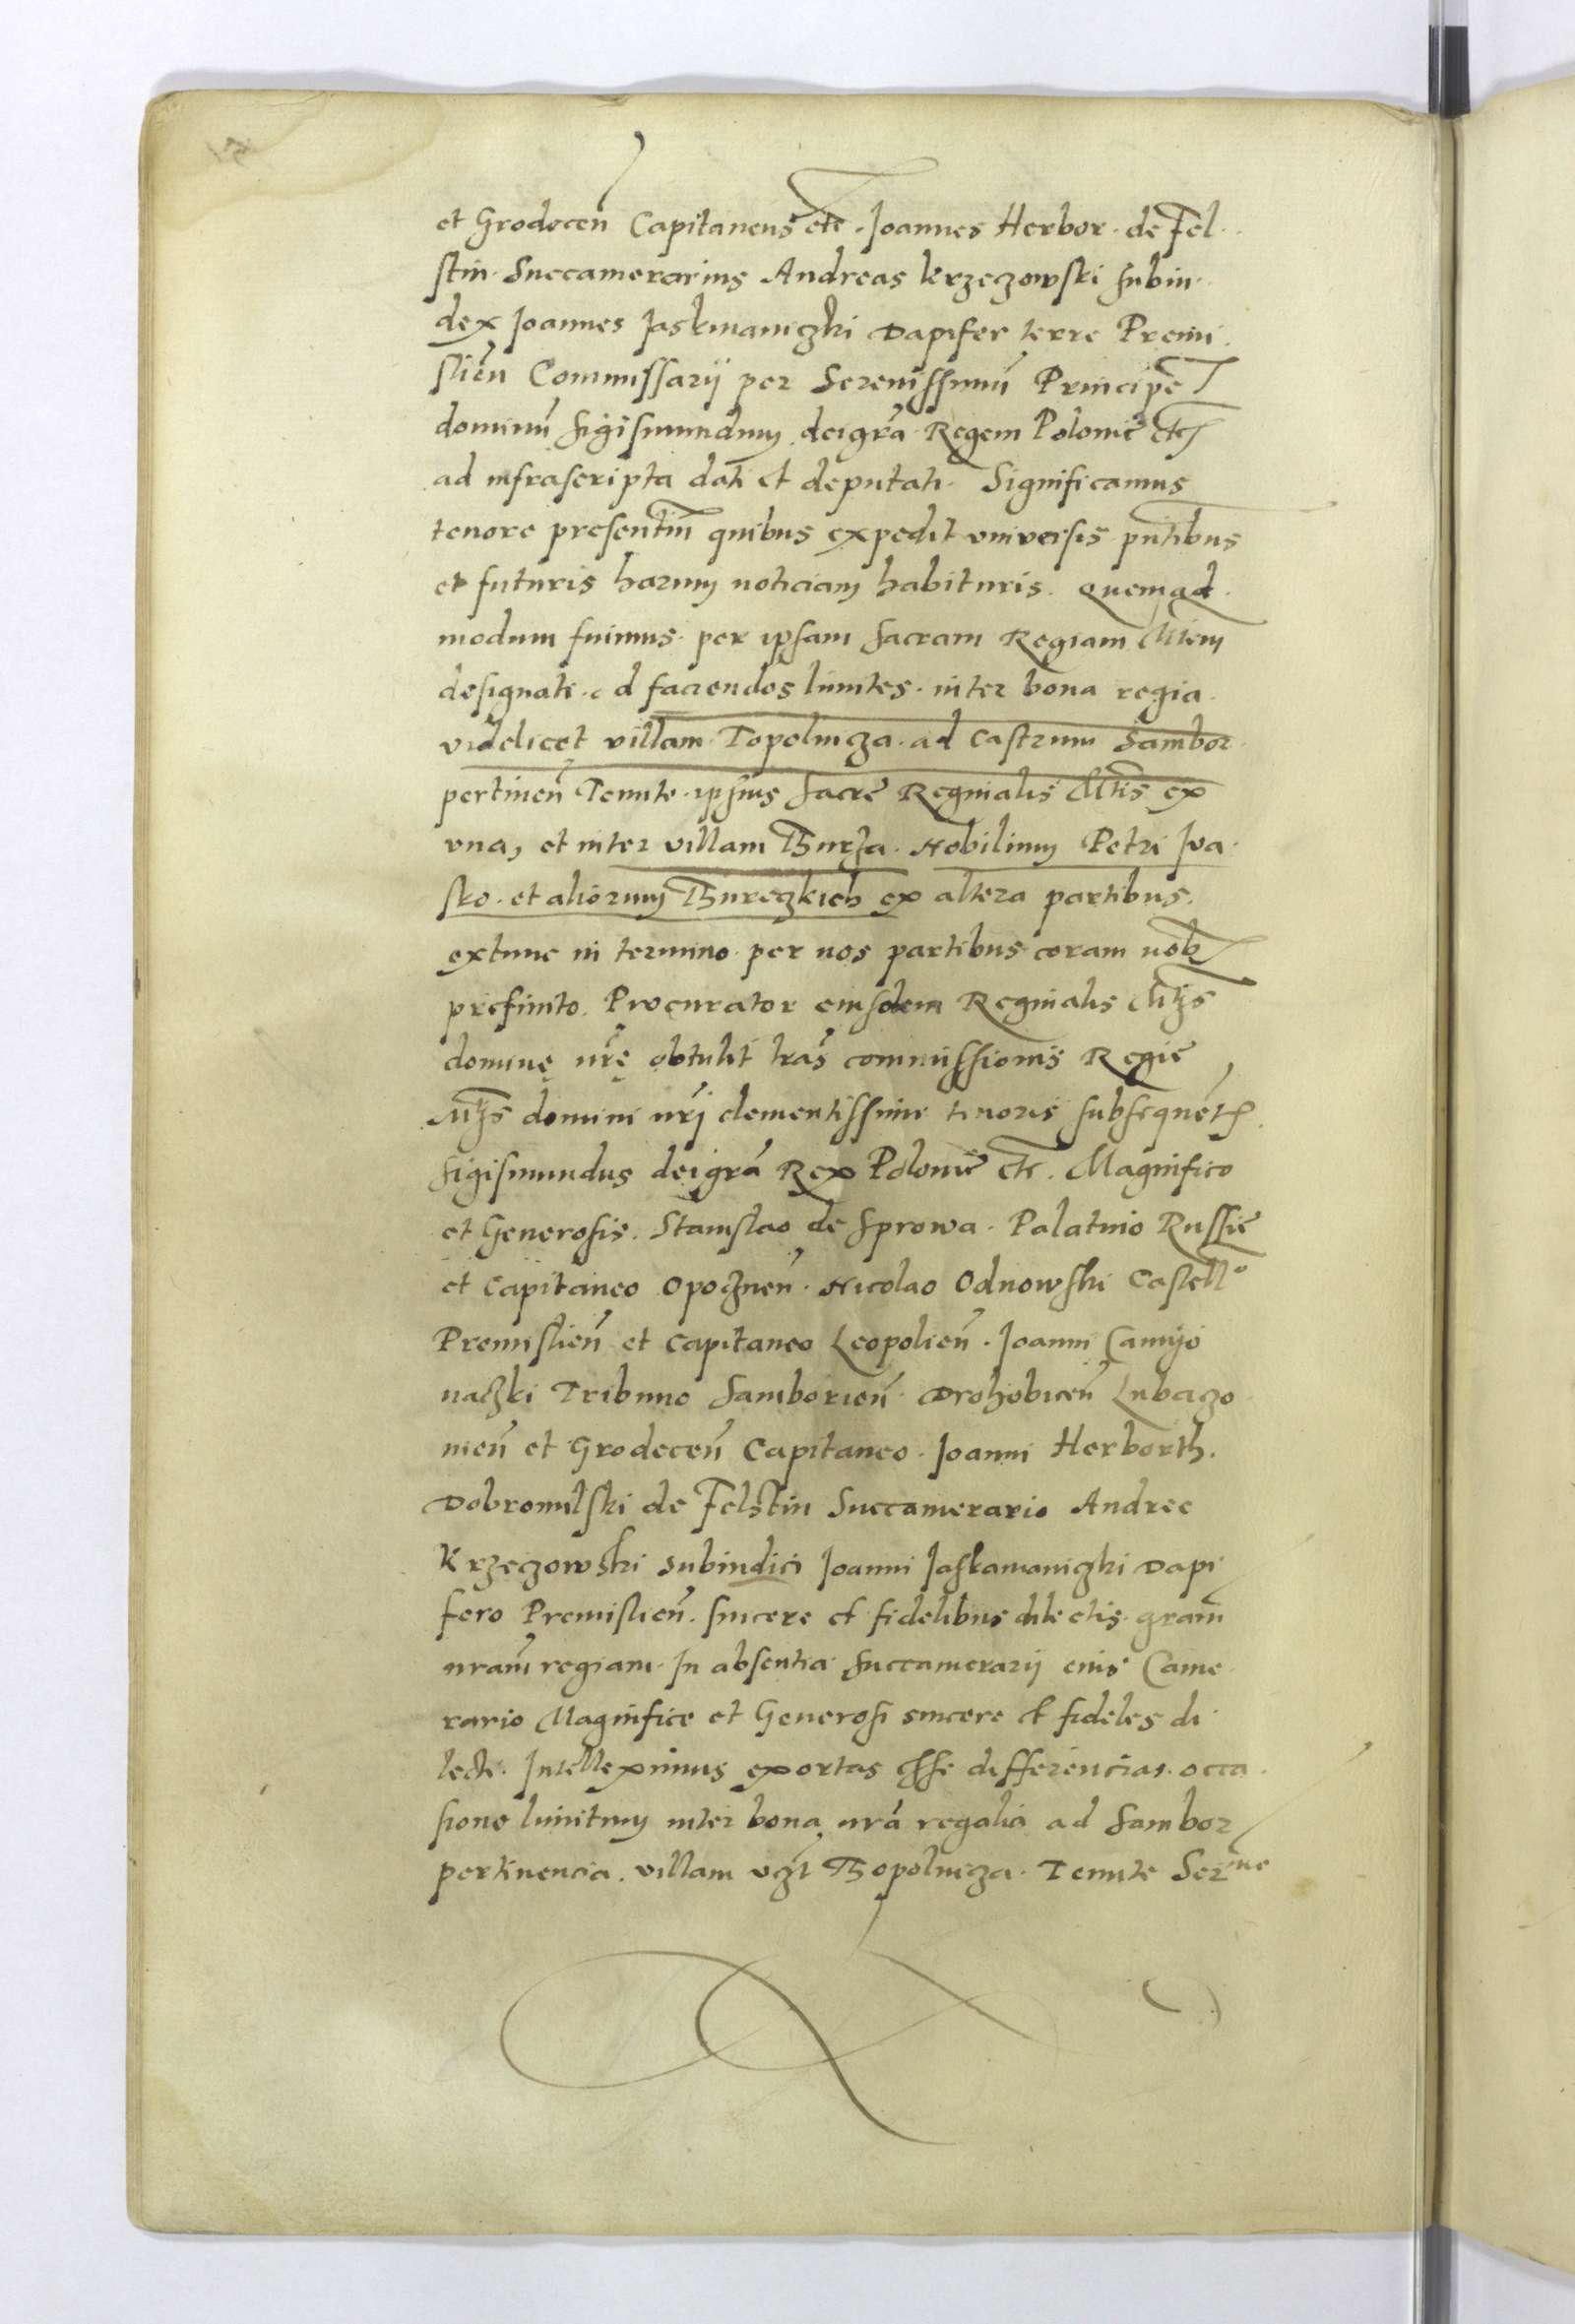 et Grodecen̄ Capitaneus etc. Joannes Herbor. de Fel.
stin. Succamerarius Andreas krzeczowski subiu.
dex Joannes Jaskmaniczki Dapifer terre Premi.
slien̄ Commissarij per Serenissimū Principē
dominū Sigismundum deigrā Regem Polonie etc
ad infrascripta dati et deputati. Significamus
tenore presentiū quibus expedit vniversis pn̄tibus
et futuris harum noticiam habituris. Quemad.
modum fuimus. per ipsam sacram Regiam Mtem
designati. ad faciendos limites. inter bona regia.
videlicet villam Topolnicza. ad Castrum Sambor.
pertinen̄ Tenute. ipsius sacre Reginalis Mtis ex
vna, et inter villam Thurza. Nobilium Petri Iva.
sko. et aliorum Thureczkich ex altera partibus.
extunc in termino per nos partibus coram nob
prefinito. Procurator eiusdem Reginalis Mtis
domine nrē obtulit lrās commissionis Regie
Mtis domini nrī clementissimi tenoris subsequentis.
Sigismundus deigrā Rex Polonie etc. Magnifico
et Generosis. Stanislao de Sprowa. Palatino Russie
et Capitaneo Opocznen̄. Nicolao Odnowski Castello
Premislien̄ et Capitaneo Leopolien̄. Joanni Camyo
naczki Tribuno Samborien̄ Drohobicen̄ Lubaczo
nien̄ et Grodecen̄ Capitaneo. Joanni Herborth.
Dobromilski de Felstin Succamerario Andree
Krzeczowski subiudici Joanni Jaskamaniczki Dapi
fero Premislien̄. sincere et fidelibus dilectis. gram̄
nram̄ regiam. In absentia Succamerarij eius Came.
rario Magnifice et Generosi sincere et fideles di
lecti. Intelleximus exortas esse differencias. occa.
sione limitum inter bona nrā regalia ad Sambor
pertinencia. villam vczt Thopolnicza. Tenute Serme